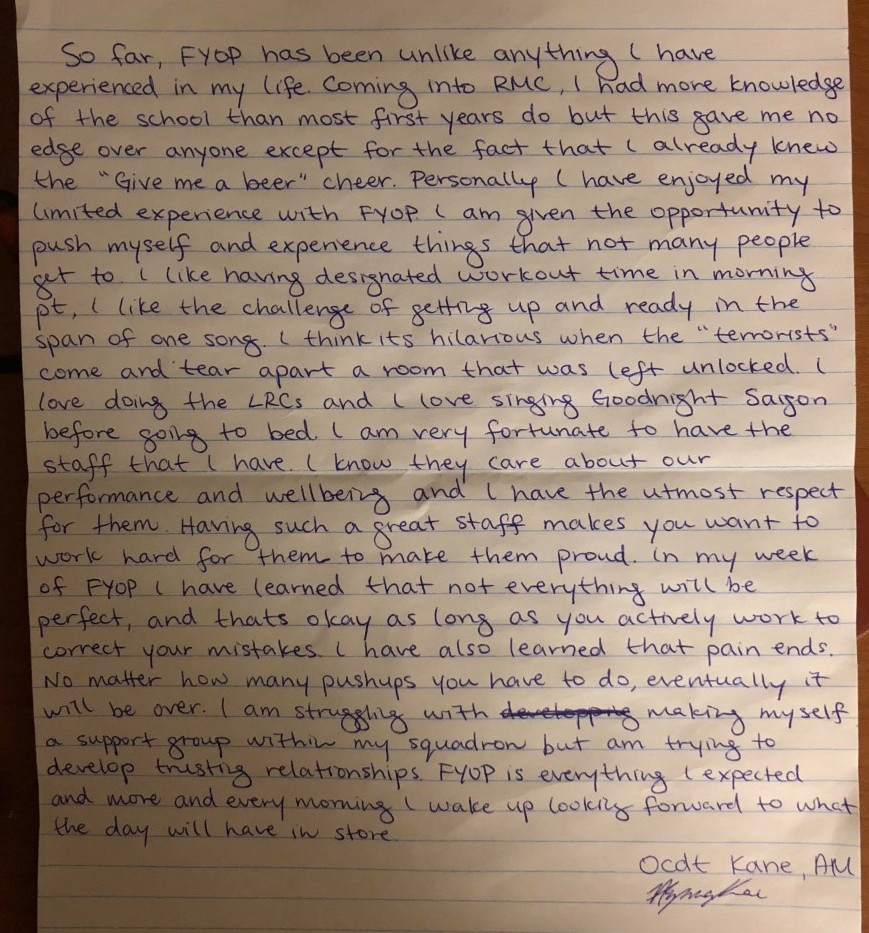 So far, FYOP has been unlike anything I have
experienced in my life. Coming into RMC, I had more knowledge
of the school than most first years do but this gave me no
edge over anyone except for the fact that I already knew
the "Give me a beer" cheer. Personally I have enjoyed my
limited experience with FYOP I am given the opportunity to
push myself and experience things that not many people
get to. I like having designated workout time in morning
pt, I like the challenge of getting up and ready in the
span of one song. I think its hilarious when the "terrorists"
come and tear apart a room that was left unlocked. I
love doing the LRCs and I love singing Goodnight Saigon
before going to bed. I am very fortunate to have the
staff that I have. I know they care about our
performance and wellbeing and I have the utmost respect
for them. Having such a great staff makes you want to
work hard for them to make them proud. In my week
of FYOP I have learned that not everything will be
perfect, and thats okay as long as you actively work to
correct your mistakes. I have also learned that pain ends.
No matter how many pushups you have to do, eventually it
will be over. I am struggling with developping making myself
a support group within my squadron but am trying to
develop trusting relationships. FYOP is everything I expected
and more and every morning I wake up looking forward to what
the day will have in store
Ocdt Kane, AM